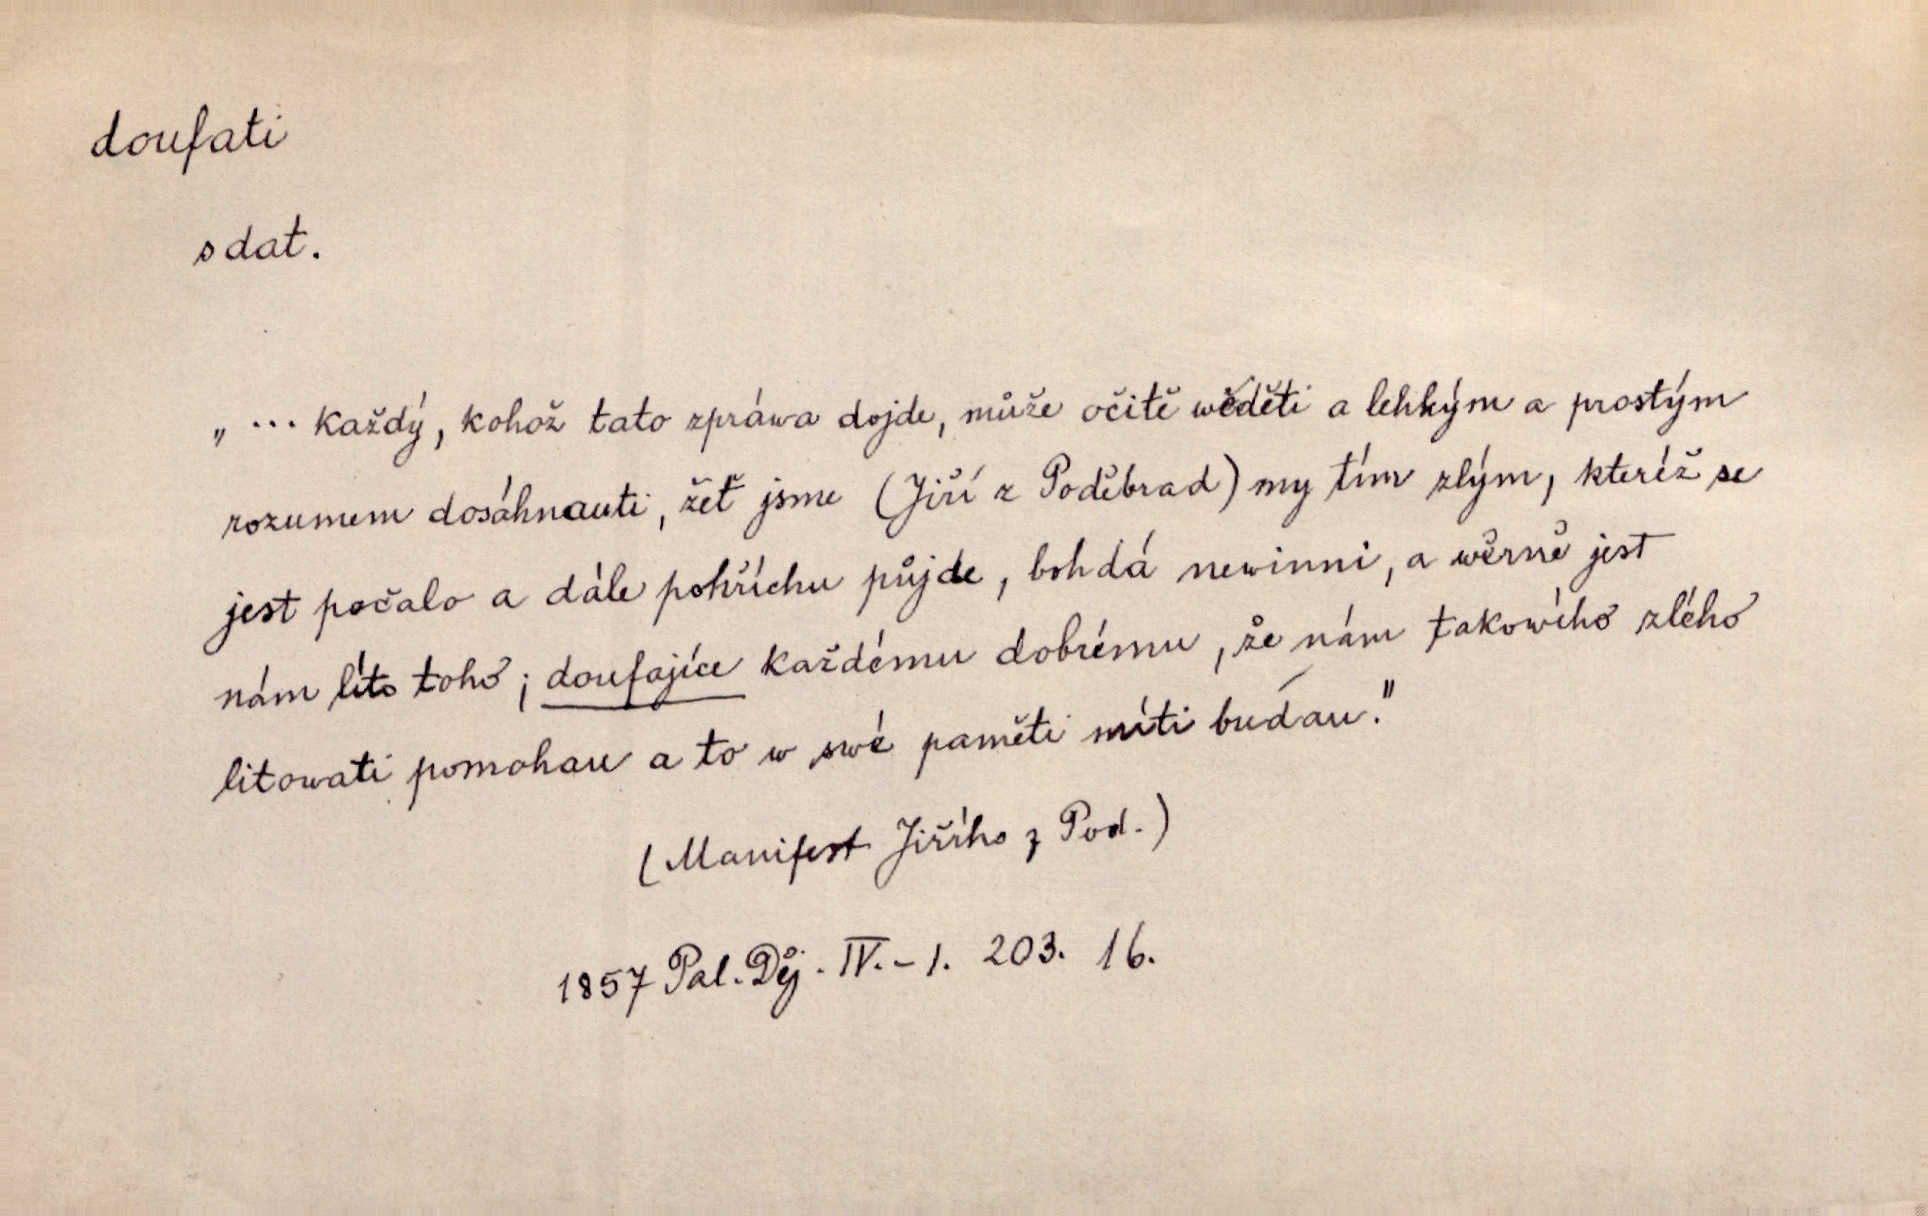 doufati
s dat.
„ ... každý, kohož tato zpráwa dojde, může očitě wěděti a lehkým a prostým
rozumem dosáhnauti, žeť jsme (Jiří z Poděbrad) my tím zlým, kteréž se
jest počalo a dále pohříchu půjde, bohdá newinni, a wěrně jest
nám líto toho; doufajíce každému dobrému, že nám takowého zlého
litowati pomohau a to w swé paměti míti budau."
(Manifest Jiřího z Pod.)
1857 Pal. Děj. IV.-1. 203. 16.